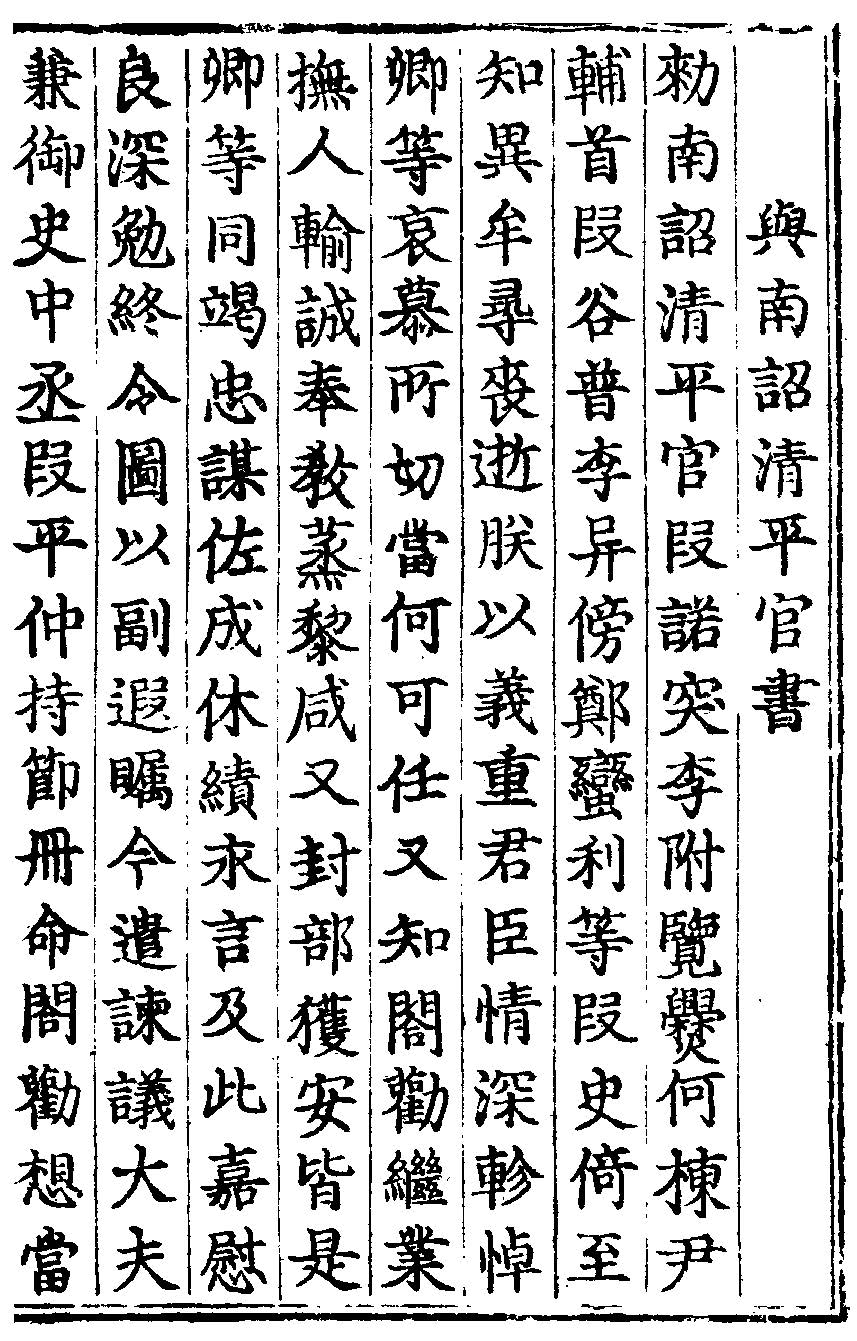 與南詔清平官書
勑南詔清平官段諾突李附覽爨何棟尹
輔首段谷普李异傍鄭蠻利等段史倚至
知異牟尋喪逝朕以義重君臣情深軫悼
卿等哀慕所切當何可任又知閤勸繼業
撫人輸誠奉教蒸黎咸乂封部獲安皆是
卿等同竭忠謀佐成休績永言及此嘉慰
良深勉終令圖以副遐矚今遣諫議大夫
兼御史中丞段平仲持節冊命閤勸想當